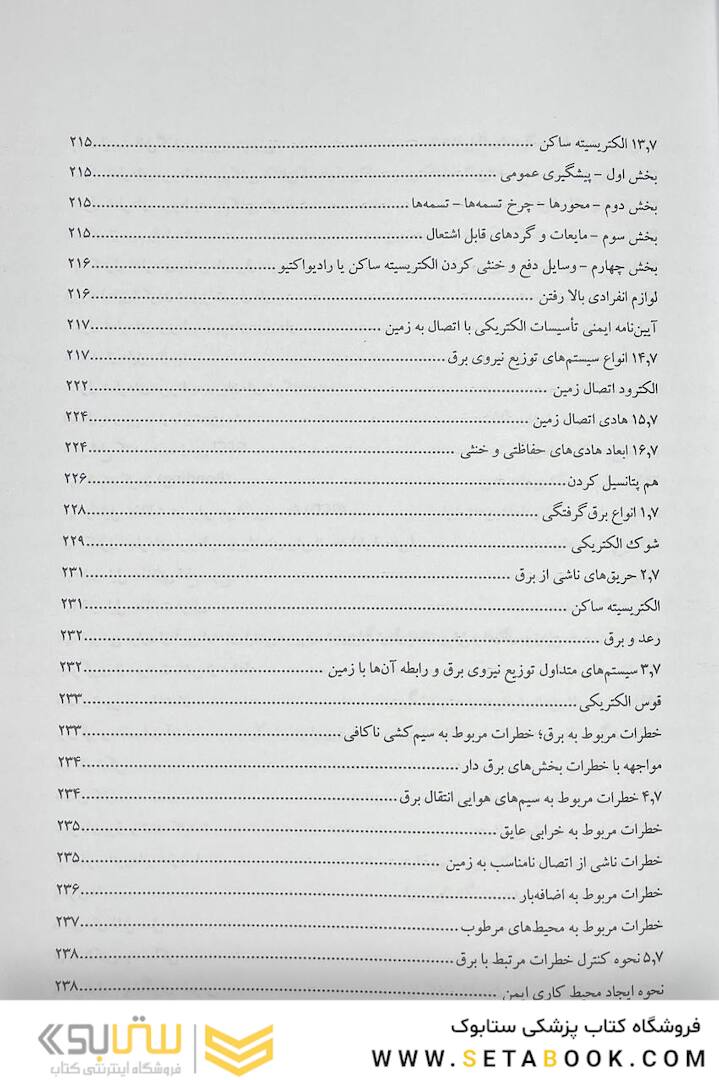 ۱۳٫۷ الکتریسیته ساکن ........ ۲۱۵
بخش اول – پیشگیری عمومی ........ ۲۱۵
بخش دوم – محورها – چرخ تسمه‌ها – تسمه‌ها ........ ۲۱۵
بخش سوم – مایعات و گردهای قابل اشتعال ........ ۲۱۵
بخش چهارم – وسایل دفع و خنثی کردن الکتریسیته ساکن یا رادیواکتیو ........ ۲۱۶
لوازم انفرادی بالا رفتن ........ ۲۱۶
آیین‌نامه ایمنی تأسیسات الکتریکی با اتصال به زمین ........ ۲۱۷
۱۴٫۷ انواع سیستم‌های توزیع نیروی برق ........ ۲۱۷
الکترود اتصال زمین ........ ۲۲۲
۱۵٫۷ هادی اتصال زمین ........ ۲۲۴
۱۶٫۷ ابعاد هادی‌های حفاظتی و خنثی ........ ۲۲۴
هم پتانسیل کردن ........ ۲۲۶
۱٫۷ انواع برق‌گرفتگی ........ ۲۲۸
شوک الکتریکی ........ ۲۲۹
۲٫۷ حریق‌های ناشی از برق ........ ۲۳۱
الکتریسیته ساکن ........ ۲۳۱
رعد و برق ........ ۲۳۲
۳٫۷ سیستم‌های متداول توزیع نیروی برق و رابطه آن‌ها با زمین ........ ۲۳۲
قوس الکتریکی ........ ۲۳۳
خطرات مربوط به برق؛ خطرات مربوط به سیم‌کشی ناکافی ........ ۲۳۳
مواجهه با خطرات بخش‌های برق دار ........ ۲۳۴
۴٫۷ خطرات مربوط به سیم‌های هوایی انتقال برق ........ ۲۳۴
خطرات مربوط به خرابی عایق ........ ۲۳۵
خطرات ناشی از اتصال نامناسب به زمین ........ ۲۳۵
خطرات مربوط به اضافه‌بار ........ ۲۳۶
خطرات مربوط به محیط‌های مرطوب ........ ۲۳۷
۵٫۷ نحوه کنترل خطرات مرتبط با برق ........ ۲۳۸
نحوه ایجاد محیط کاری ایمن ........ ۲۳۸
فروشگاه کتاب پزشکی ستابوک
WWW.SETABOOK.COM
ستابوک
فروشگاه اینترنتی کتاب